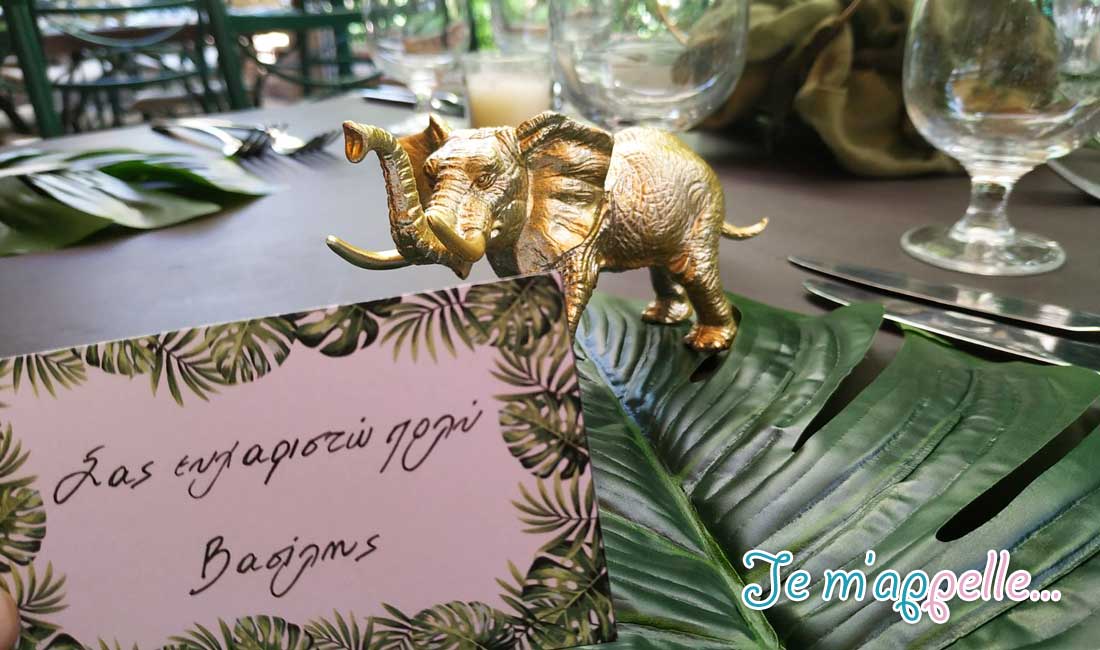 Σας ευχαριστώ πολύ
Βασίλης
Je m'appelle...